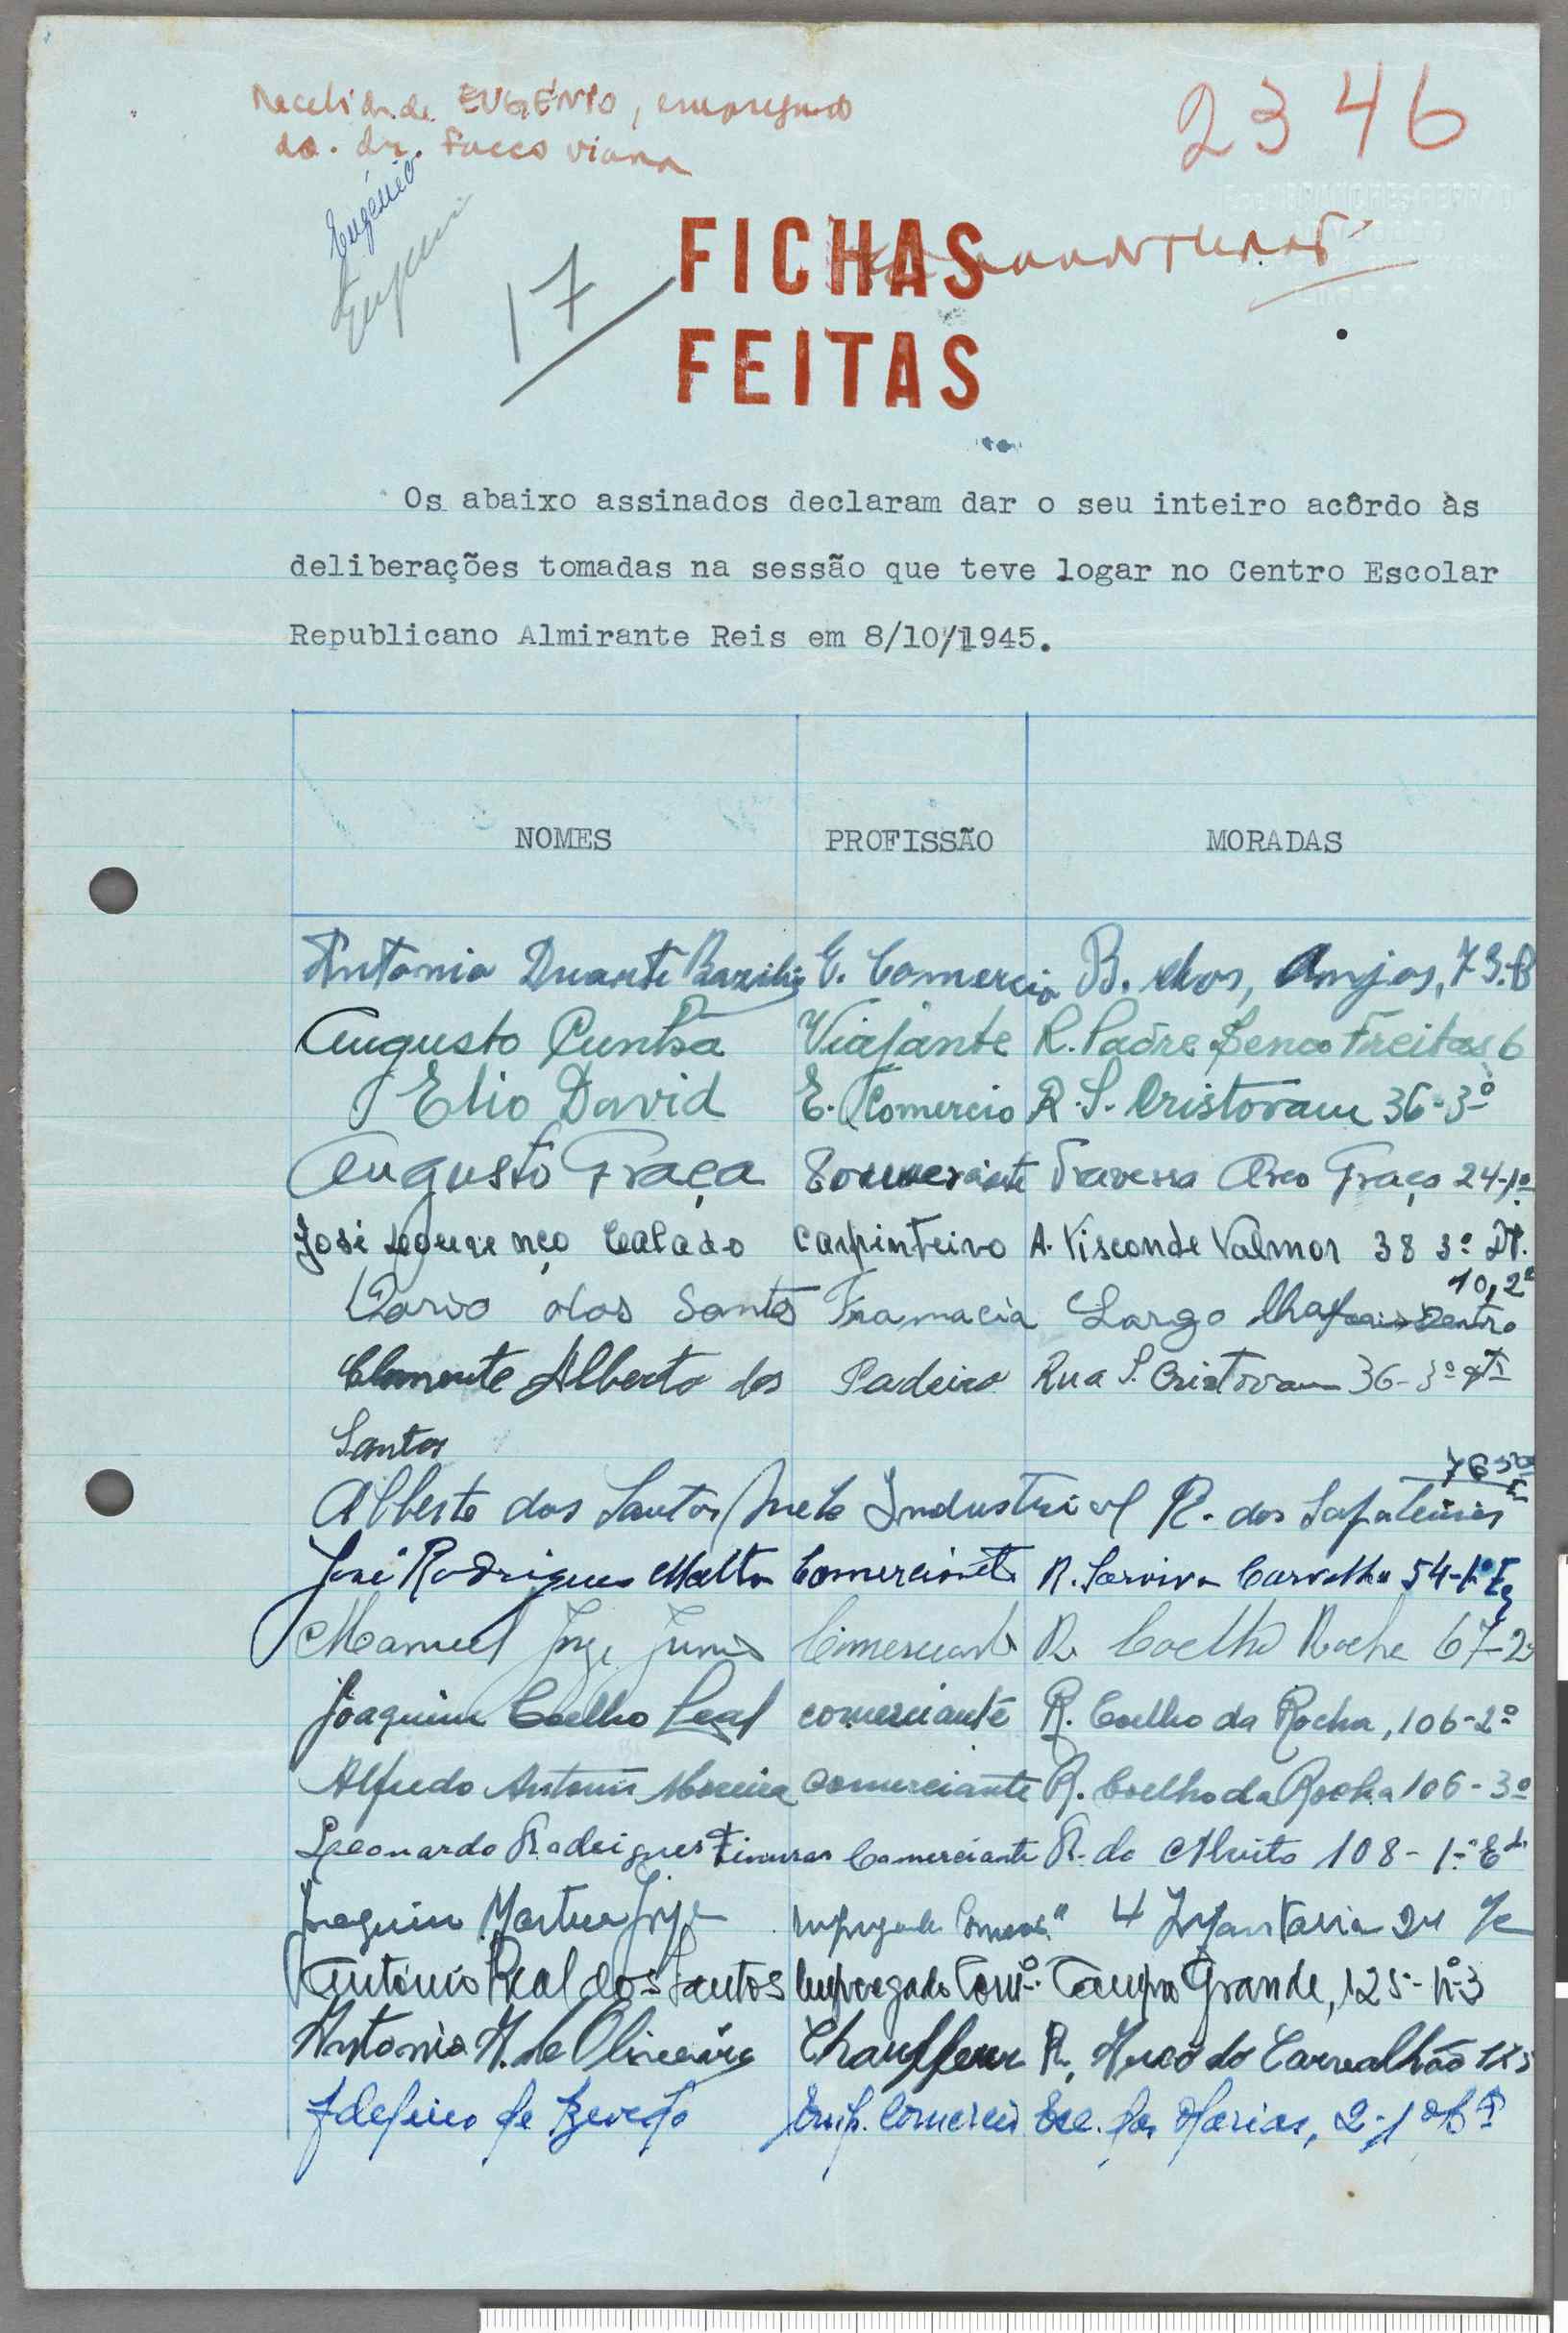 EUGÉNIO, empregado
do. dr. Facco Viana
2346
Eugénio
17
FICHAS
FEITAS
Os abaixo assinados declaram dar o seu inteiro acôrdo às
deliberações tomadas na sessão que teve logar no Centro Escolar
Republicano Almirante Reis em 8/10/1945.
NOMES PROFISSÃO MORADAS
Antonio Duarte Bazilio E. Comercio B. dos, Anjos, 73-B
Augusto Cunha Viajante R. Padre Sena Freitas 6
Elio David E. Comercio R. S. Cristovam 36-3º
Augusto Graça Comerciante Travessa Arco Graça 24-1º
José Lourenço Calado Carpinteiro A. Visconde Valmor 38 3º Dt.
10,2º
Dario dos Santos Framacia Largo Dentro
Clemente Alberto dos Padeiro Rua S. Cristovam 36-3º
Santos
76
Alberto dos Santos Neto Industrial R. dos Sapateiros
José Rodrigues Matta Comerciante R. Saraiva Carvalho 54-1º
Manuel Jorge Comerciante R. Coelho Rocha 67-2º
Joaquim Coelho Leal comerciante R. Coelho da Rocha, 106-2º
Alfredo Antonio Moreira Comerciante R. Coelho da Rocha 106-3º
Leonardo Rodrigues Comerciante R. do 108-1º
Joaquim Martins Jorge 4 Infantaria 24
António Real dos Santos Empregado Comº. Campo Grande, 125-nº3
Antonio N. de Oliveira Chauffeur R. Arco do Carvalhão
de Azevedo Emp. Comercio